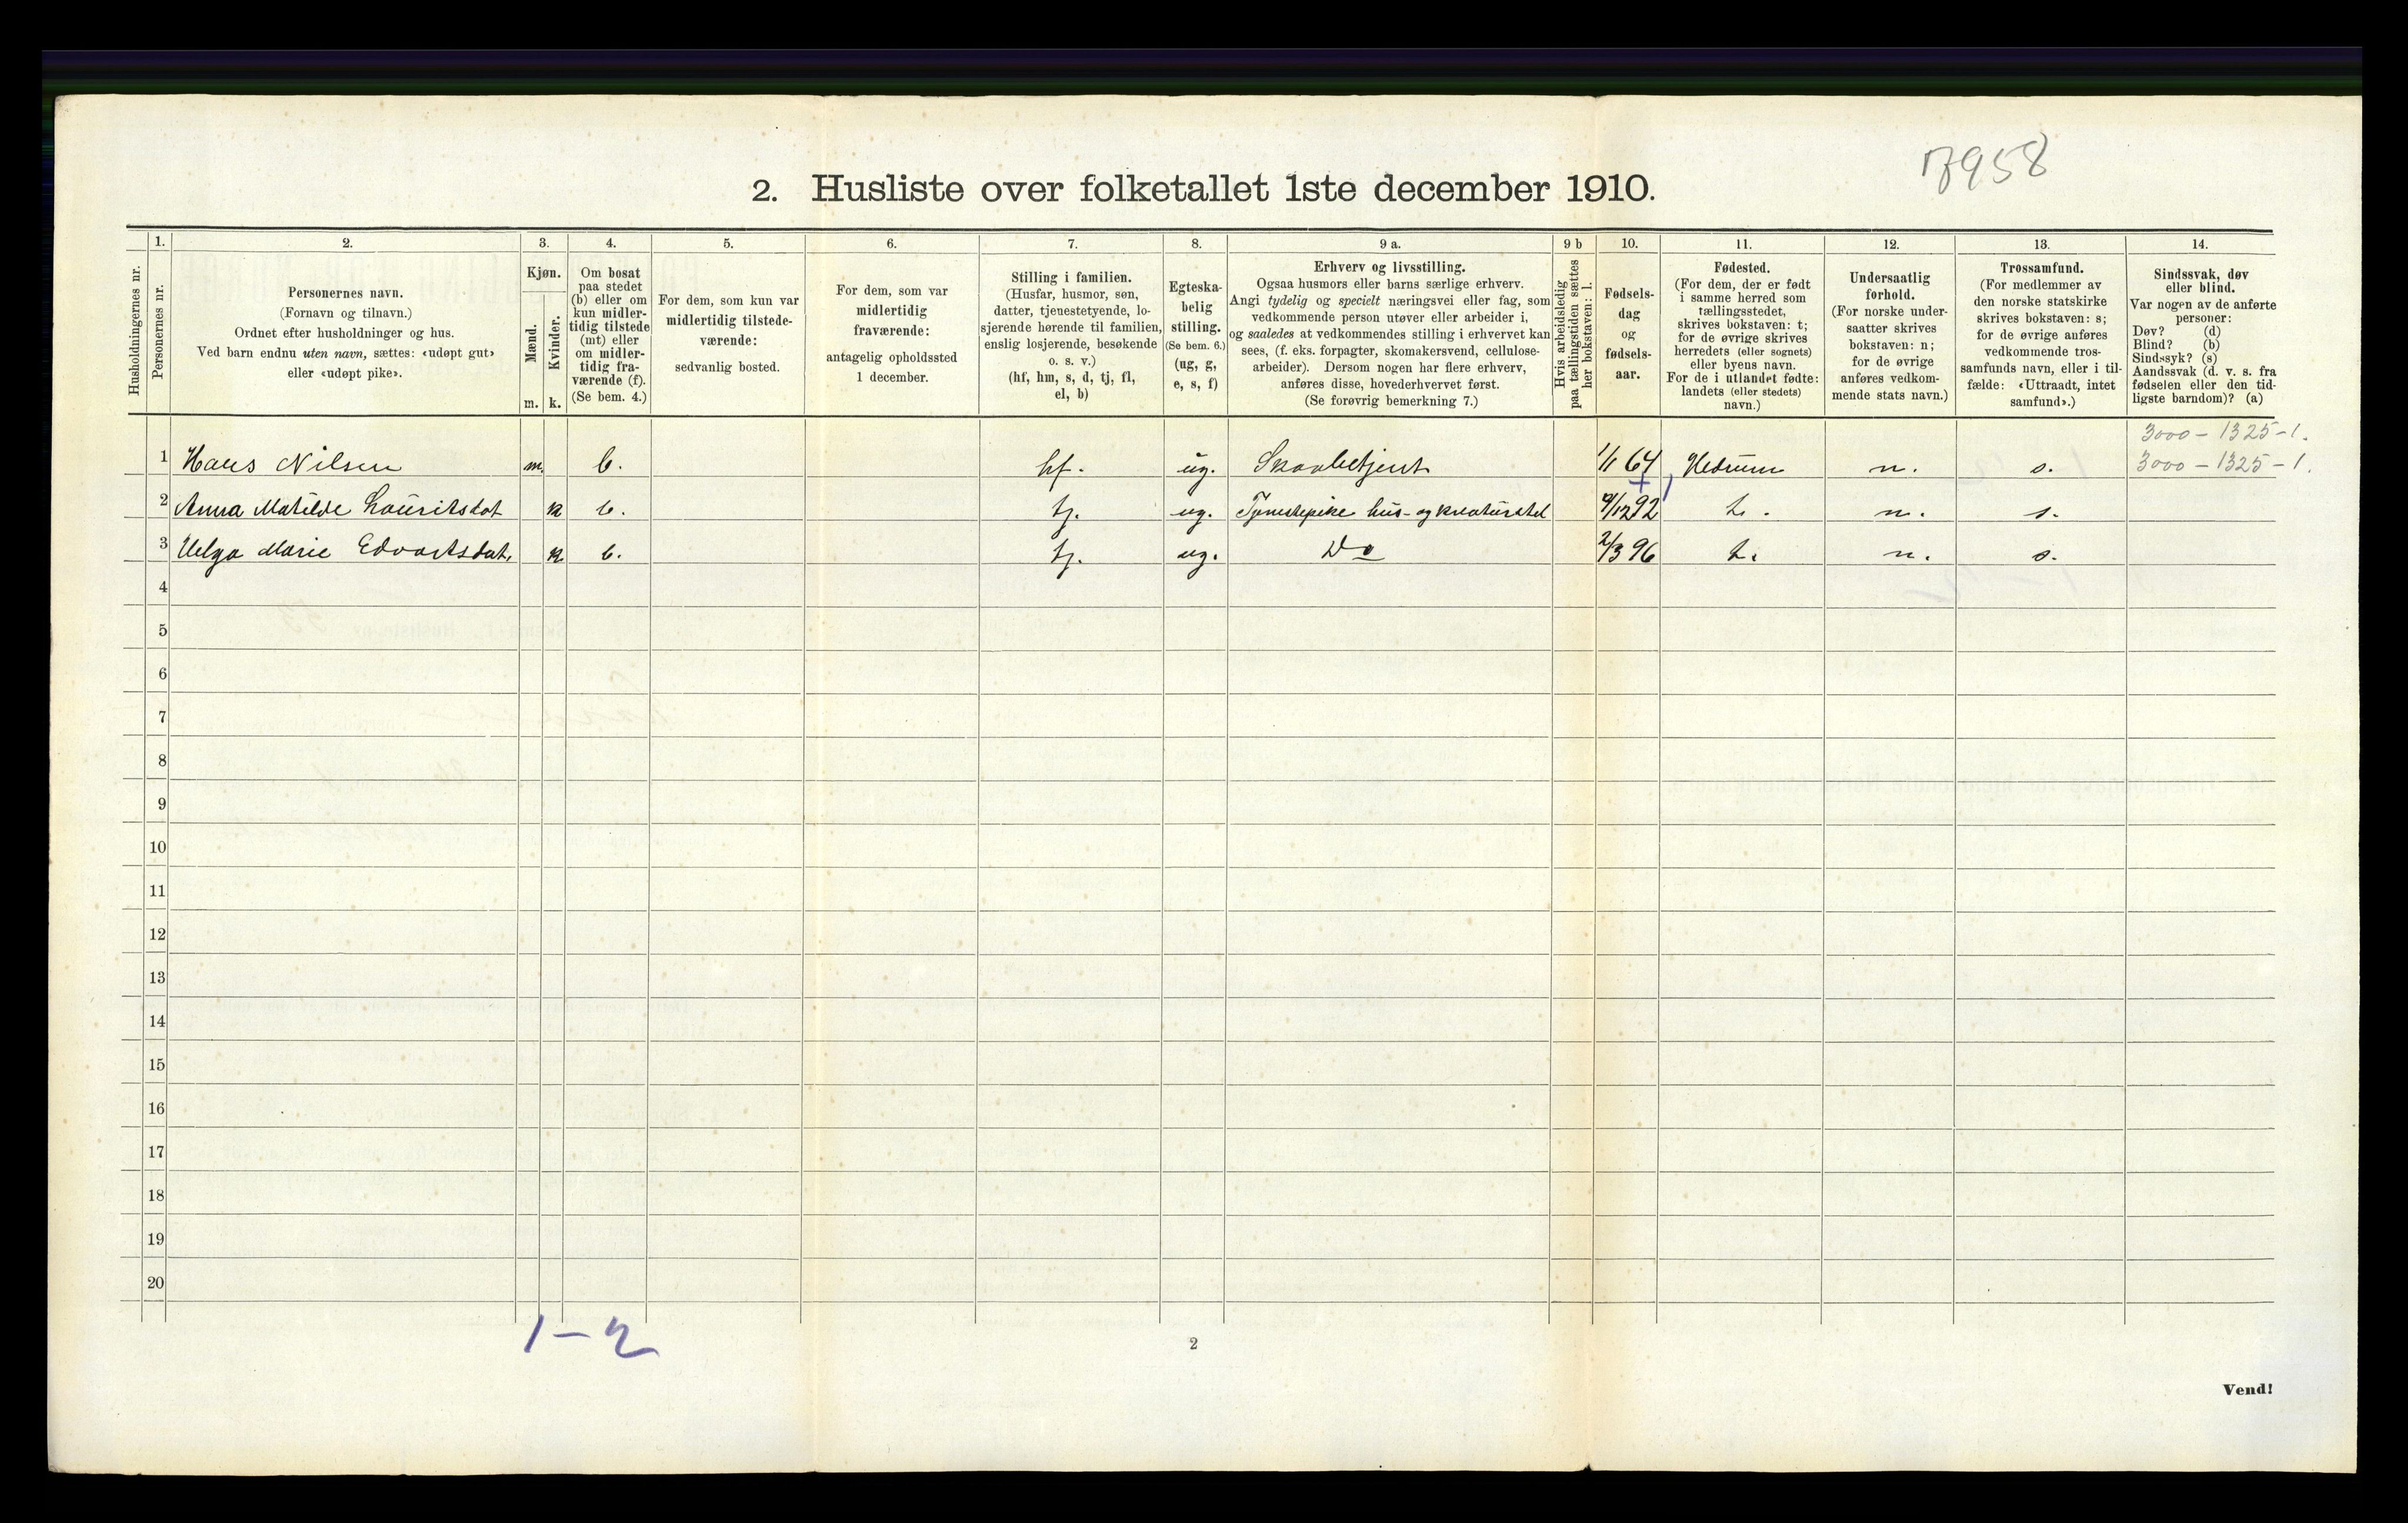 2. Husliste over folketallet 1ste december 1910.
Husholdningernes nr.
1.
Personernes nr.
2.
Personernes navn.
(Fornavn og tilnavn.)
Ordnet efter husholdninger og hus.
Ved barn endnu uten navn, sættes: «udøpt gut»
eller «udøpt pike».
3.
Kjøn.
Mænd.
Kvinder.
m.
k.
4.
Om bosat
paa stedet
(b) eller om
kun midler-
tidig tilstede
(mt) eller
om midler-
tidig fra-
værende (f).
(Se bem. 4.)
5.
For dem, som kun var
midlertidig tilstede-
værende:
sedvanlig bosted.
6.
For dem, som var
midlertidig
fraværende:
antagelig opholdssted
1 december.
7.
Stilling i familien.
(Husfar, husmor, søn,
datter, tjenestetyende, lo-
sjerende hørende til familien,
enslig losjerende, besøkende
o. s. v.)
(hf, hm, s, d, tj, fl,
el, b)
8.
Egteska-
belig
stilling.
(Se bem. 6.)
(ug, g,
e, s, f)
9 a.
Erhverv og livsstilling.
Ogsaa husmors eller barns særlige erhverv.
Angi tydelig og specielt næringsvei eller fag, som
vedkommende person utøver eller arbeider i,
og saaledes at vedkommendes stilling i erhvervet kan
sees, (f. eks. forpagter, skomakersvend, cellulose-
arbeider). Dersom nogen har flere erhverv,
anføres disse, hovederhvervet først.
(Se forøvrig bemerkning 7.)
9 b
Hvis arbeidsledig
paa tællingstiden sættes
her bokstaven: l.
10.
Fødsels-
dag
og
fødsels-
aar.
11.
Fødested.
(For dem, der er født
i samme herred som
tællingsstedet,
skrives bokstaven: t;
for de øvrige skrives
herredets (eller sognets)
eller byens navn.
For de i utlandet fødte:
landets (eller stedets)
navn.)
12.
Undersaatlig
forhold.
(For norske under-
saatter skrives
bokstaven: n;
for de øvrige
anføres vedkom-
mende stats navn.)
13.
Trossamfund.
(For medlemmer av
den norske statskirke
skrives bokstaven: s;
for de øvrige anføres
vedkommende tros-
samfunds navn, eller i til-
fælde: «Uttraadt, intet
samfund».)
14.
Sindssvak, døv
eller blind.
Var nogen av de anførte
personer:
Døv? (d)
Blind? (b)
Sindssyk? (s)
Aandssvak (d. v. s. fra
fødselen eller den tid-
ligste barndom)? (a)
3000 - 1325 - 1.
1 Hans Nilsen m. b. hf. ug. Skovbetjent 1/1 64 Hedrum n. s. 3000 - 1325 - 1.
2 Anna Matilde Lauritsdat k b. tj. ug. Tjenestepike hus- og kreaturstel 9/12 92 t. n. s.
3 Helga Marie Edvartsdat. k b. tj. ug. Do 2/3 96 t. n. s.
4
5
6
7
8
9
10
11
12
13
14
15
16
17
18
19
20
1 - 2
2
Vend!